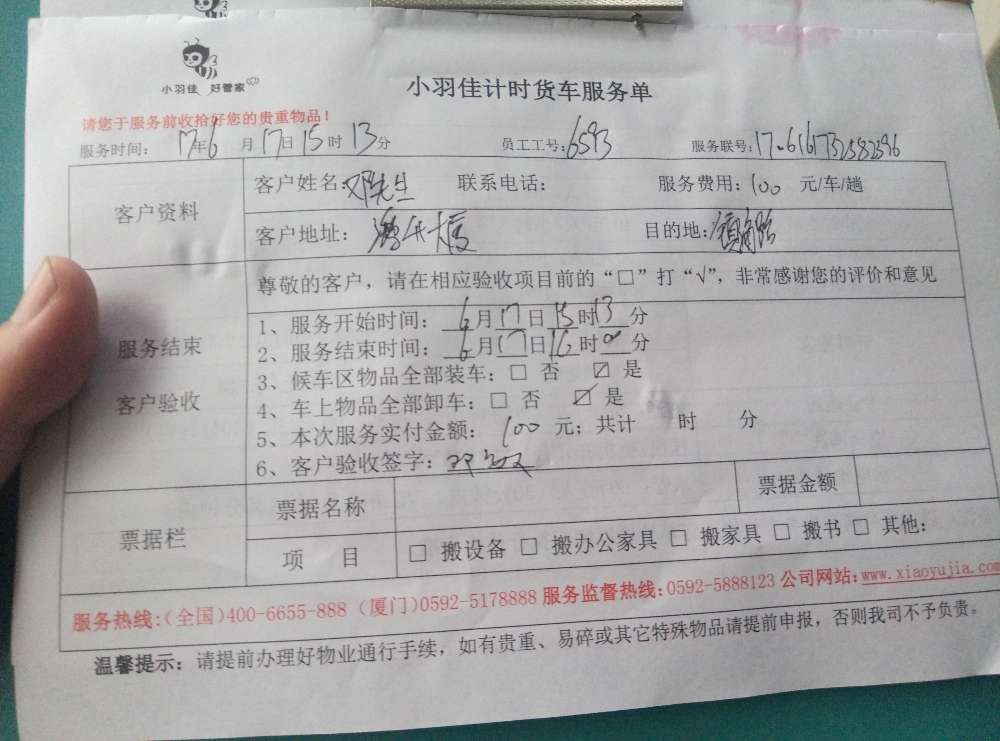 小羽佳 好管家
小羽佳计时货车服务单
请您于服务前收拾好您的贵重物品！
服务时间： 17年6月17日15时13分 员工工号：6593 服务联号：17.
客户资料
客户姓名：邓先生 联系电话： 服务费用：100 元/车/趟
客户地址： 大厦 目的地：
服务结束
客户验收
尊敬的客户，请在相应验收项目前的“□”打“√”，非常感谢您的评价和意见
1、服务开始时间：6月17日15时13分
2、服务结束时间：6月17日16时0分
3、候车区物品全部装车：□ 否 ☑ 是
4、车上物品全部卸车：□ 否 ☑ 是
5、本次服务实付金额：100 元；共计 时 分
6、客户验收签字：
票据栏
票据名称 票据金额
项 目 □ 搬设备 □ 搬办公家具 □ 搬家具 □ 搬书 □ 其他：
服务热线：（全国）400-6655-888（厦门）0592-5178888 服务监督热线：0592-5888123 公司网站：www.xiaoyujia.com
温馨提示：请提前办理好物业通行手续，如有贵重、易碎或其它特殊物品请提前申报，否则我司不予负责。